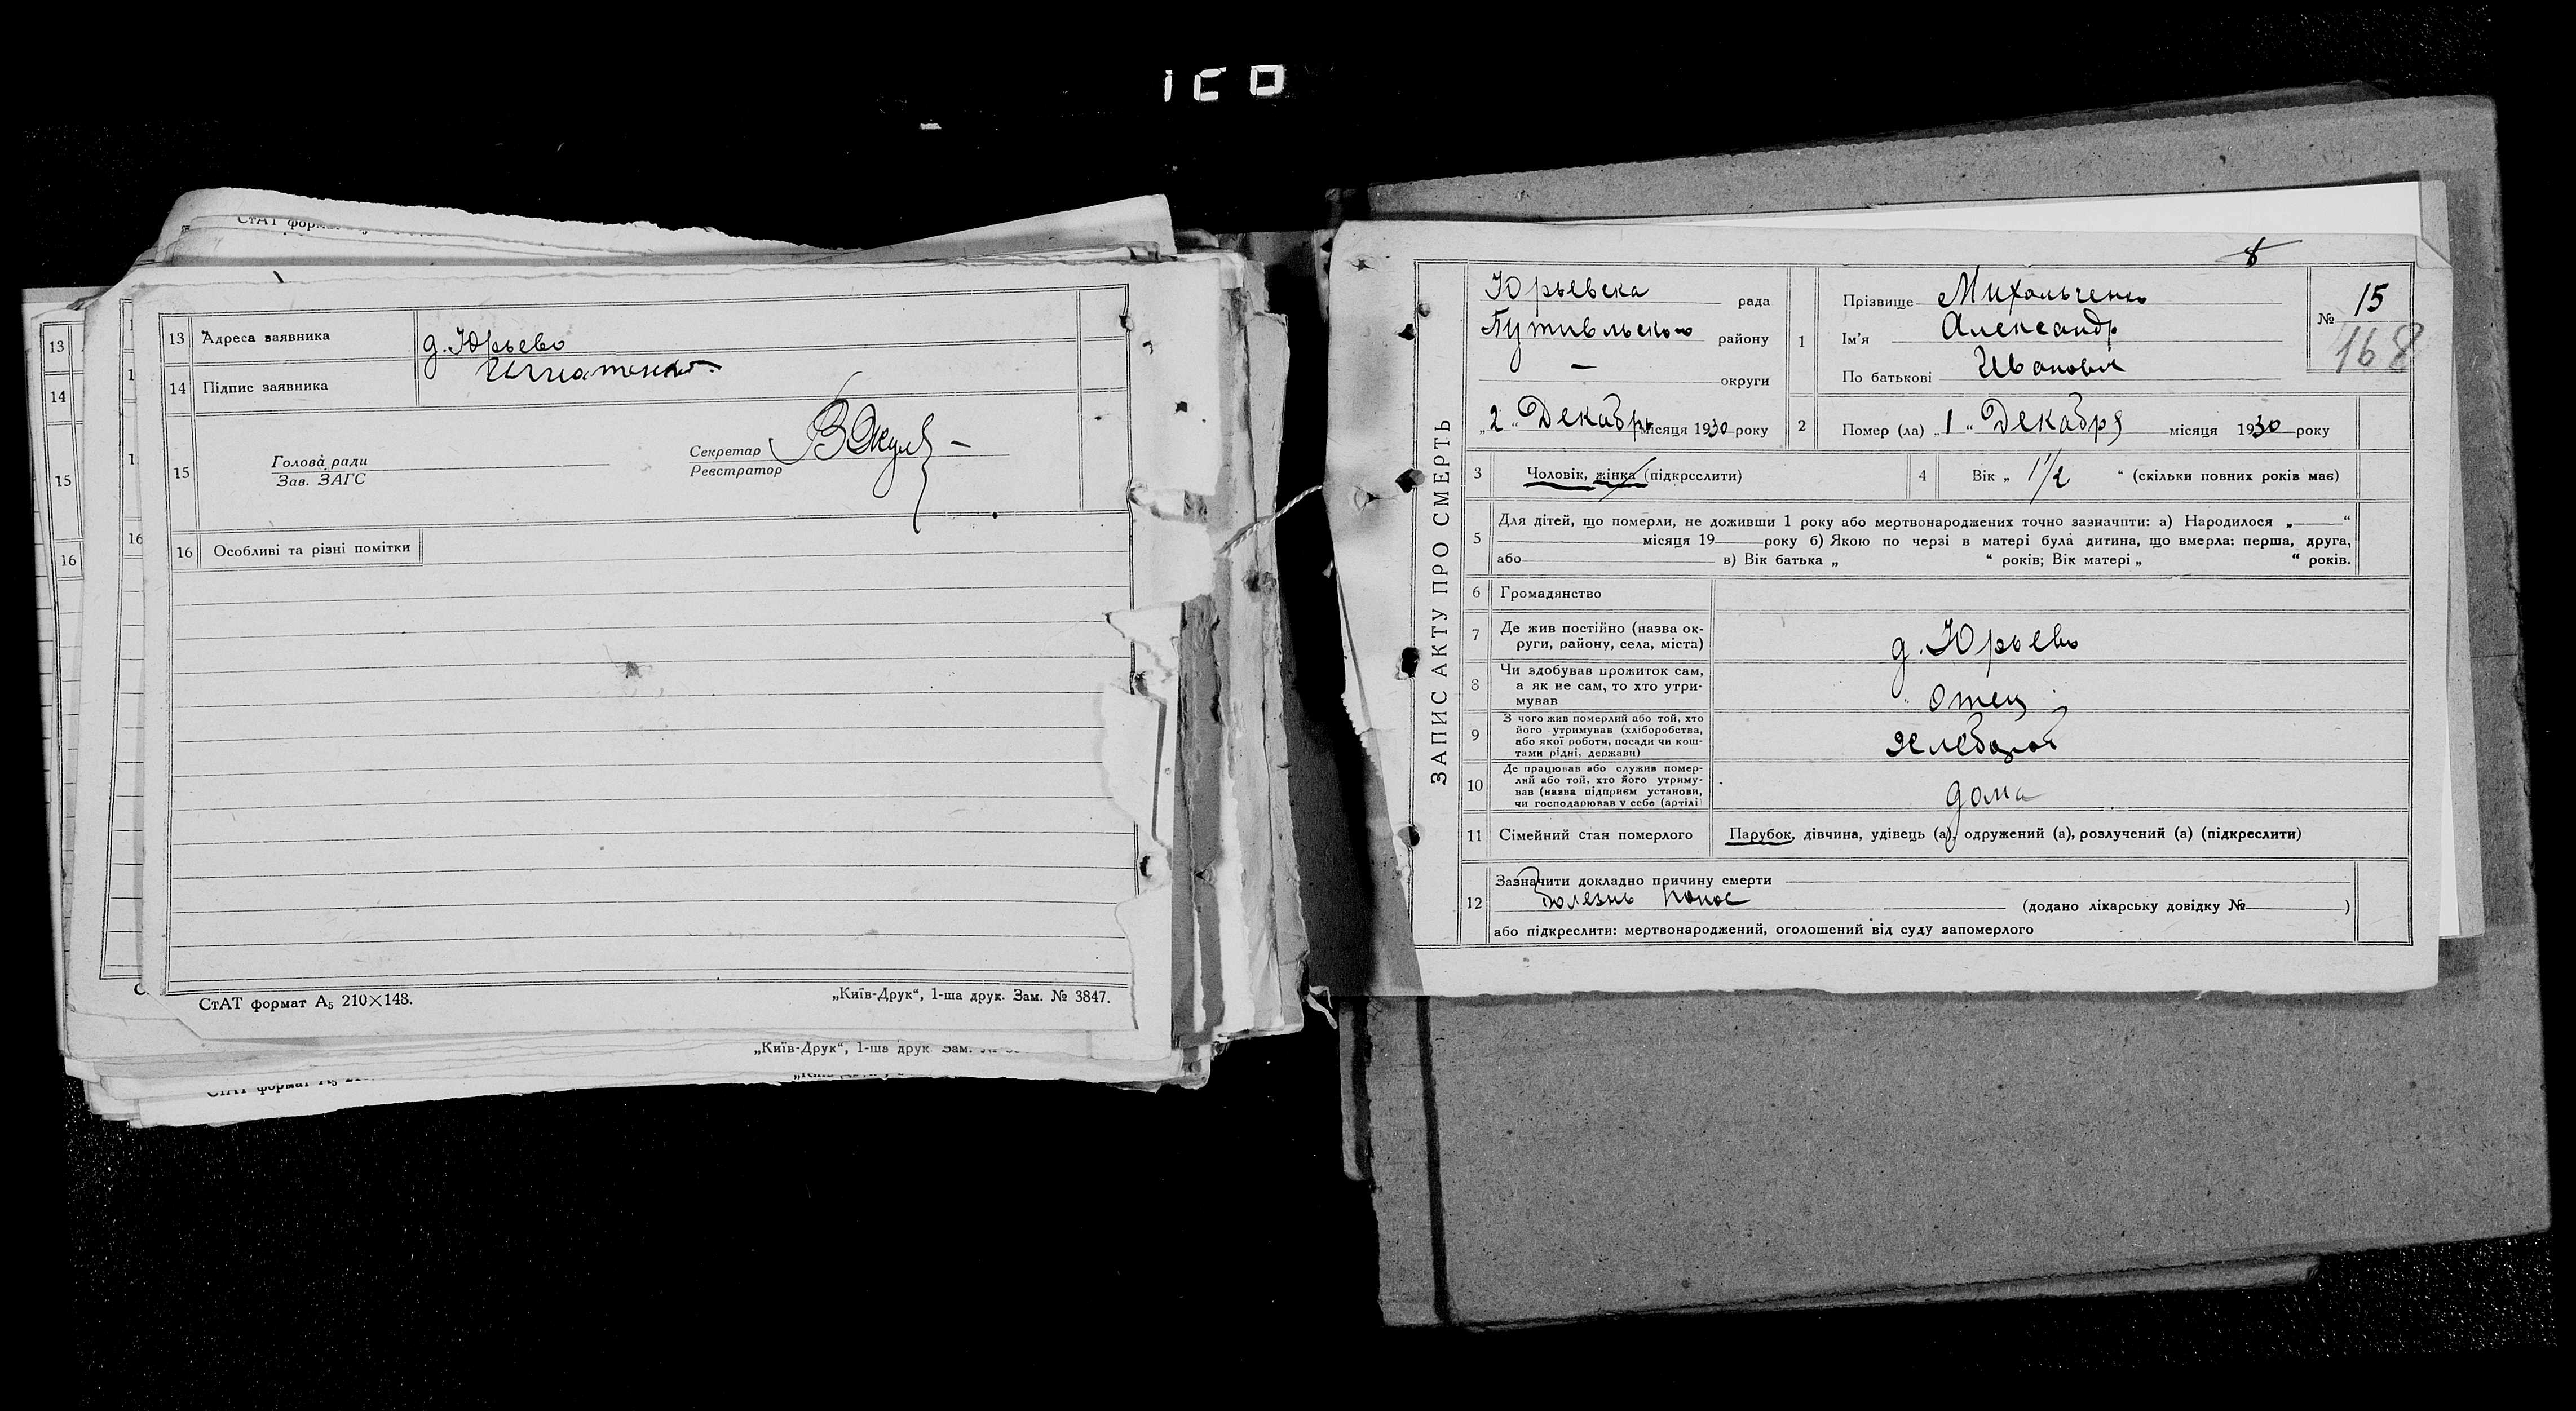 ICO
СтАТ форм
13 Адреса заявника д. Юрьево
14 Підпис заявника Игнатенко
15 Голова ради
Зав. ЗАГС
Секретар
Реєстратор
16 Особливі та різні помітки
СтАТ формат А5 210×148. „Київ-Друк“, 1-ша друк. Зам. № 3847.
„Київ-Друк“, 1-ша друк. Зам. №
СтАТ формат А5
13
14
15
16
ЗАПИС АКТУ ПРО СМЕРТЬ
8
Юрьевска рада
Путивльского району
— округи
„2“ Декабрь місяця 1930 року
1 Прізвище Михальченко
Ім'я Александр
По батькові Иванович
№ 15
168
2 Помер (ла) „1“ Декабря місяця 1930 року
3 Чоловік, жінка (підкреслити)
4 Вік „ 1 1/2 “ (скільки повних років має)
5 Для дітей, що померли, не доживши 1 року або мертвонароджених точно зазначити: а) Народилося „—“
місяця 19 року б) Якою по черзі в матері була дитина, що вмерла: перша, друга,
або в) Вік батька „ “ років; Вік матері „ “ років.
6 Громадянство
7 Де жив постійно (назва ок-
руги, району, села, міста) д. Юрьево
8 Чи здобував прожиток сам,
а як не сам, то хто утри-
мував отец
9 З чого жив померлий або той, хто
його утримував (хліборобства,
або якої роботи, посади чи кош-
тами рідні, держави) Хлебороб
10 Де працював або служив помер-
лий або той, хто його утриму-
вав (назва підприєм установи,
чи господарював у себе (артілі) дома
11 Сімейний стан померлого Парубок, дівчина, удівець (а), одружений (а), розлучений (а) (підкреслити)
12 Зазначити докладно причину смерти
болезнь понос (додано лікарську довідку № )
або підкреслити: мертвонароджений, оголошений від суду запомерлого